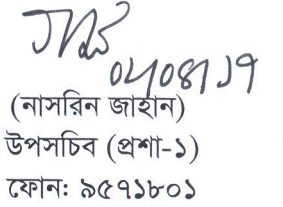 ০৮।০৪।১৭
(নাসরিন জাহান)
উপসচিব (প্রশা-১)
ফোন: ৯৫৭১৮০১